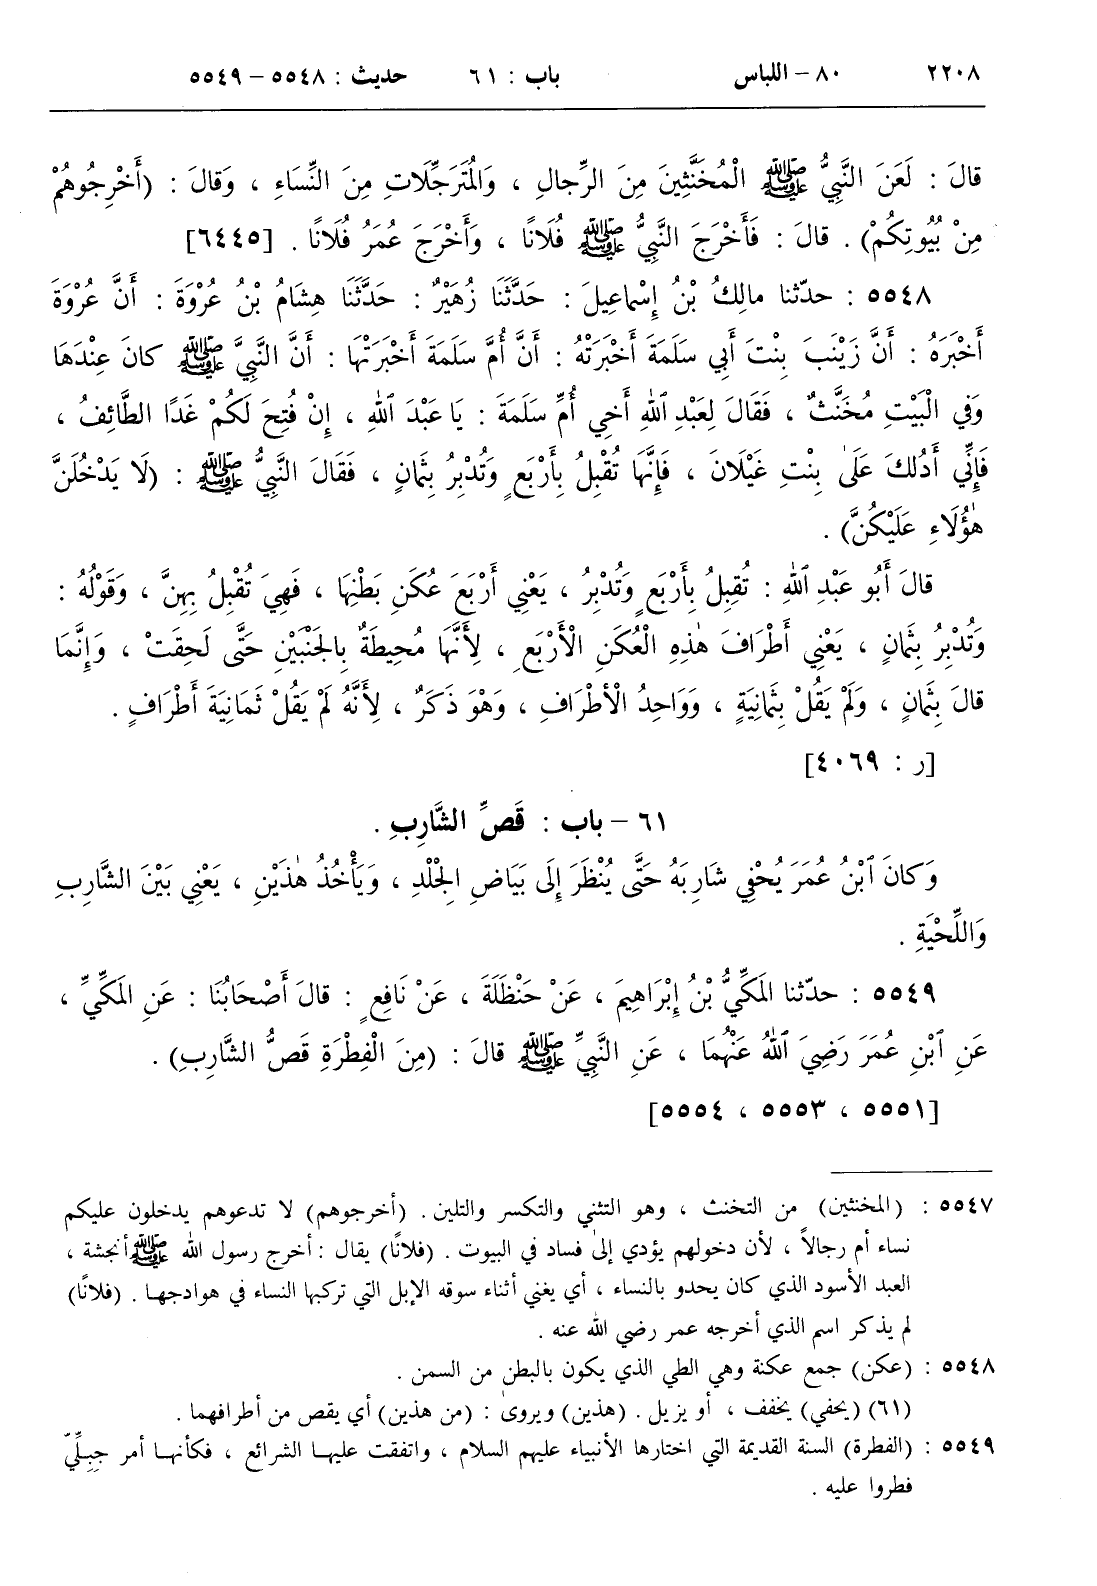 ٢٢٠٨ ٨٠ – اللباس باب : ٦١ حديث : ٥٥٤٨ – ٥٥٤٩
قالَ : لَعَنَ النَّبِيُّ ﷺ الْمُخَنَّثِينَ مِنَ الرِّجالِ ، وَالْمُتَرَجِّلَاتِ مِنَ النِّسَاءِ ، وَقالَ : (أَخْرِجُوهُمْ
مِنْ بُيُوتِكُمْ) . قالَ : فَأَخْرَجَ النَّبِيُّ ﷺ فُلَانًا ، وَأَخْرَجَ عُمَرُ فُلَانًا . [٦٤٤٥]
٥٥٤٨ : حدّثنا مالِكُ بْنُ إِسْماعِيلَ : حَدَّثَنَا زُهَيْرٌ : حَدَّثَنَا هِشَامُ بْنُ عُرْوَةَ : أَنَّ عُرْوَةَ
أَخْبَرَهُ : أَنَّ زَيْنَبَ بِنْتَ أَبِي سَلَمَةَ أَخْبَرَتْهُ : أَنَّ أُمَّ سَلَمَةَ أَخْبَرَتْهَا : أَنَّ النَّبِيَّ ﷺ كانَ عِنْدَهَا
وَفِي الْبَيْتِ مُخَنَّثٌ ، فَقَالَ لِعَبْدِ ٱللهِ أَخِي أُمِّ سَلَمَةَ : يَا عَبْدَ ٱللهِ ، إِنْ فُتِحَ لَكُمْ غَدًا الطَّائِفُ ،
فَإِنِّي أَدُلُّكَ عَلَىٰ بِنْتِ غَيْلَانَ ، فَإِنَّهَا تُقْبِلُ بِأَرْبَعٍ وَتُدْبِرُ بِثَمانٍ ، فَقَالَ النَّبِيُّ ﷺ : (لَا يَدْخُلَنَّ
هٰؤُلَاءِ عَلَيْكُنَّ) .
قالَ أَبُو عَبْدِ ٱللهِ : تُقْبِلُ بِأَرْبَعٍ وَتُدْبِرُ ، يَعْنِي أَرْبَعَ عُكَنِ بَطْنِهَا ، فَهِيَ تُقْبِلُ بِهِنَّ ، وَقَوْلُهُ :
وَتُدْبِرُ بِثَمانٍ ، يَعْنِي أَطْرَافَ هٰذِهِ الْعُكَنِ الْأَرْبَعِ ، لِأَنَّهَا مُحِيطَةٌ بِالجَنْبَيْنِ حَتَّى لَحِقَتْ ، وَإِنَّمَا
قالَ بِثَمانٍ ، وَلَمْ يَقُلْ بِثَمانِيَةٍ ، وَوَاحِدُ الْأَطْرَافِ ، وَهْوَ ذَكَرٌ ، لِأَنَّهُ لَمْ يَقُلْ ثَمانِيَةَ أَطْرَافٍ .
[ر : ٤٠٦٩]
٦١ – باب : قَصِّ الشَّارِبِ .
وَكانَ ٱبْنُ عُمَرَ يُحْفِي شَارِبَهُ حَتَّى يُنْظَرَ إِلَى بَيَاضِ الْجِلْدِ ، وَيَأْخُذُ هٰذَيْنِ ، يَعْنِي بَيْنَ الشَّارِبِ
وَاللِّحْيَةِ .
٥٥٤٩ : حدّثنا المَكِّيُّ بْنُ إِبْرَاهِيمَ ، عَنْ حَنْظَلَةَ ، عَنْ نَافِعٍ : قالَ أَصْحَابُنَا : عَنِ المَكِّيِّ ،
عَنِ ٱبْنِ عُمَرَ رَضِيَ ٱللهُ عَنْهُمَا ، عَنِ النَّبِيِّ ﷺ قالَ : (مِنَ الْفِطْرَةِ قَصُّ الشَّارِبِ) .
[٥٥٥١ ، ٥٥٥٣ ، ٥٥٥٤]
٥٥٤٧ : (المخنثين) من التخنث ، وهو التثني والتكسر والتلين . (أخرجوهم) لا تدعوهم يدخلون عليكم
نساء أم رجالاً ، لأن دخولهم يؤدي إلىٰ فساد في البيوت . (فلانًا) يقال : أخرج رسول الله ﷺ أنجشة ،
العبد الأسود الذي كان يحدو بالنساء ، أي يغني أثناء سوقه الإبل التي تركبها النساء في هوادجها . (فلانًا)
لم يذكر اسم الذي أخرجه عمر رضي الله عنه .
٥٥٤٨ : (عكن) جمع عكنة وهي الطي الذي يكون بالبطن من السمن .
(٦١) (يحفي) يخفف ، أو يزيل . (هذين) ويروىٰ : (من هذين) أي يقص من أطرافهما .
٥٥٤٩ : (الفطرة) السنة القديمة التي اختارها الأنبياء عليهم السلام ، واتفقت عليها الشرائع ، فكأنها أمر جِبِلِّيّ
فطروا عليه .